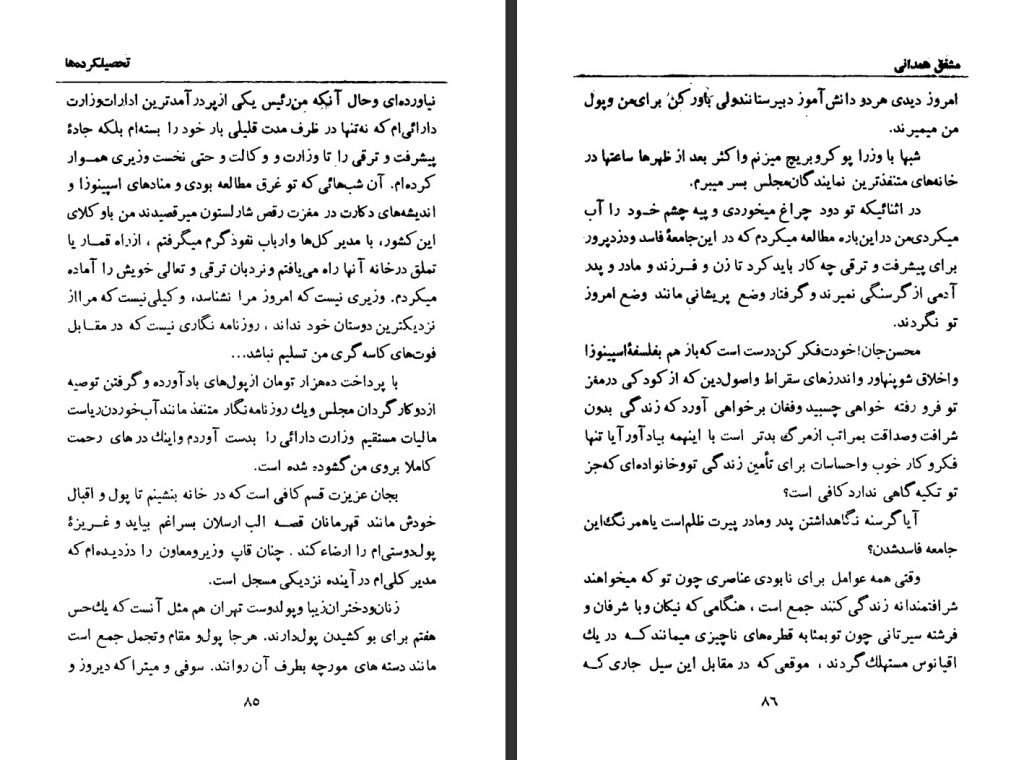 تحصیلکرده‌ها
نیاورده‌ای وحال آنکه من‌رئیس یکی ازپردرآمدترین ادارات‌وزارت
دارائی‌ام که نه‌تنها در ظرف مدت قلیلی بار خود را بسته‌ام بلکه جادهٔ
پیشرفت و ترقی را تا وزارت و وکالت و حتی نخست وزیری هموار
کرده‌ام. آن شب‌هائی‌که تو غرق مطالعه بودی و منادهای اسپینوزا و
اندیشه‌های دکارت در مغزت رقص شارلستون میرقصیدند من باوکلای
این‌کشور، با مدیرکل‌ها وارباب نفوذگرم میگرفتم ، ازراه قمار یا
تملق درخانه آنها راه می‌یافتم ونردبان ترقی و تعالی خویش را آماده
میکردم. وزیری نیست‌که امروز مرا نشناسد، و کیلی‌نیست‌که مرااز
نزدیکترین دوستان خود نداند ، روزنامه نگاری نیست‌که در مقابل
فوت‌های کاسه‌گری من تسلیم نباشد...
با پرداخت ده‌هزار تومان ازپول‌های بادآورده وگرفتن توصیه
ازدوکارگردان مجلس ویك روزنامه‌نگار متنفذ مانندآب‌خوردن‌ریاست
مالیات مستقیم وزارت دارائی را بدست آوردم واینك درهای رحمت
کاملا بروی من‌گشوده شده است.
بجان عزیزت قسم کافی است‌که در خانه بنشینم تا پول و اقبال
خودش مانند قهرمانان قصه الب ارسلان بسراغم بیاید و غریزهٔ
پول‌دوستی‌ام را ارضاءکند . چنان قاپ وزیرومعاون را دزدیده‌ام‌که
مدیرکلی‌ام درآینده نزدیکی مسجل است.
زنان‌ودختران‌زیبا وپولدوست تهران هم مثل آنست‌که یك‌حس
هفتم برای بوکشیدن پول‌دارند. هرجا پول‌و مقام وتجمل جمع است
مانند دسته های مورچه بطرف آن روانند. سوفی و میتراکه دیروز و
۸۵
مشفق همدانی
امروز دیدی هردو دانش‌آموز دبیرستانندولی باورکن برای‌من وپول
من میمیرند.
شبها با وزرا پوکروبریج میزنم واکثر بعد ازظهرها ساعتها در
خانه‌های متنفذترین نمایندگان‌مجلس بسر میبرم.
در اثنائیکه تو دود چراغ میخوردی و پیه چشم خود را آب
میکردی‌من دراین‌باره مطالعه میکردم‌که در این‌جامعهٔ فاسد ودزدپرور
برای پیشرفت و ترقی چه‌کار بایدکرد تا زن و فرزند و مادر و پدر
آدمی ازگرسنگی نمیرند وگرفتار وضع پریشانی مانند وضع امروز
تو نگردند.
محسن‌جان!خودت‌فکرکن‌درست است‌که‌بازهم بفلسفهٔ‌اسپینوزا
واخلاق شوپنهاور واندرزهای سقراط واصول‌دین‌که ازکودکی درمغز
تو فرو رفته خواهی چسبید وفغان برخواهی آوردکه زندگی بدون
شرافت وصداقت بمراتب ازمرگ بدتر است با اینهمه بیادآورآیا تنها
فکروکار خوب واحساسات برای تأمین زندگی تووخانواده‌ای‌که‌جز
تو تکیه‌گاهی نداردکافی است؟
آیاگرسنه نگاهداشتن پدر ومادر پیرت ظلم‌است یاهمرنگ‌این
جامعه فاسدشدن؟
وقتی همه عوامل برای نابودی عناصری چون توکه میخواهند
شرافتمندانه زندگی‌کنند جمع است ، هنگامی‌که نیکان وبا شرفان و
فرشته سیرتانی چون توبمثابه قطره‌های ناچیزی میمانندکه در یك
اقیانوس مستهلك گردند ، موقعی‌که در مقابل این سیل جاری که
۸۶